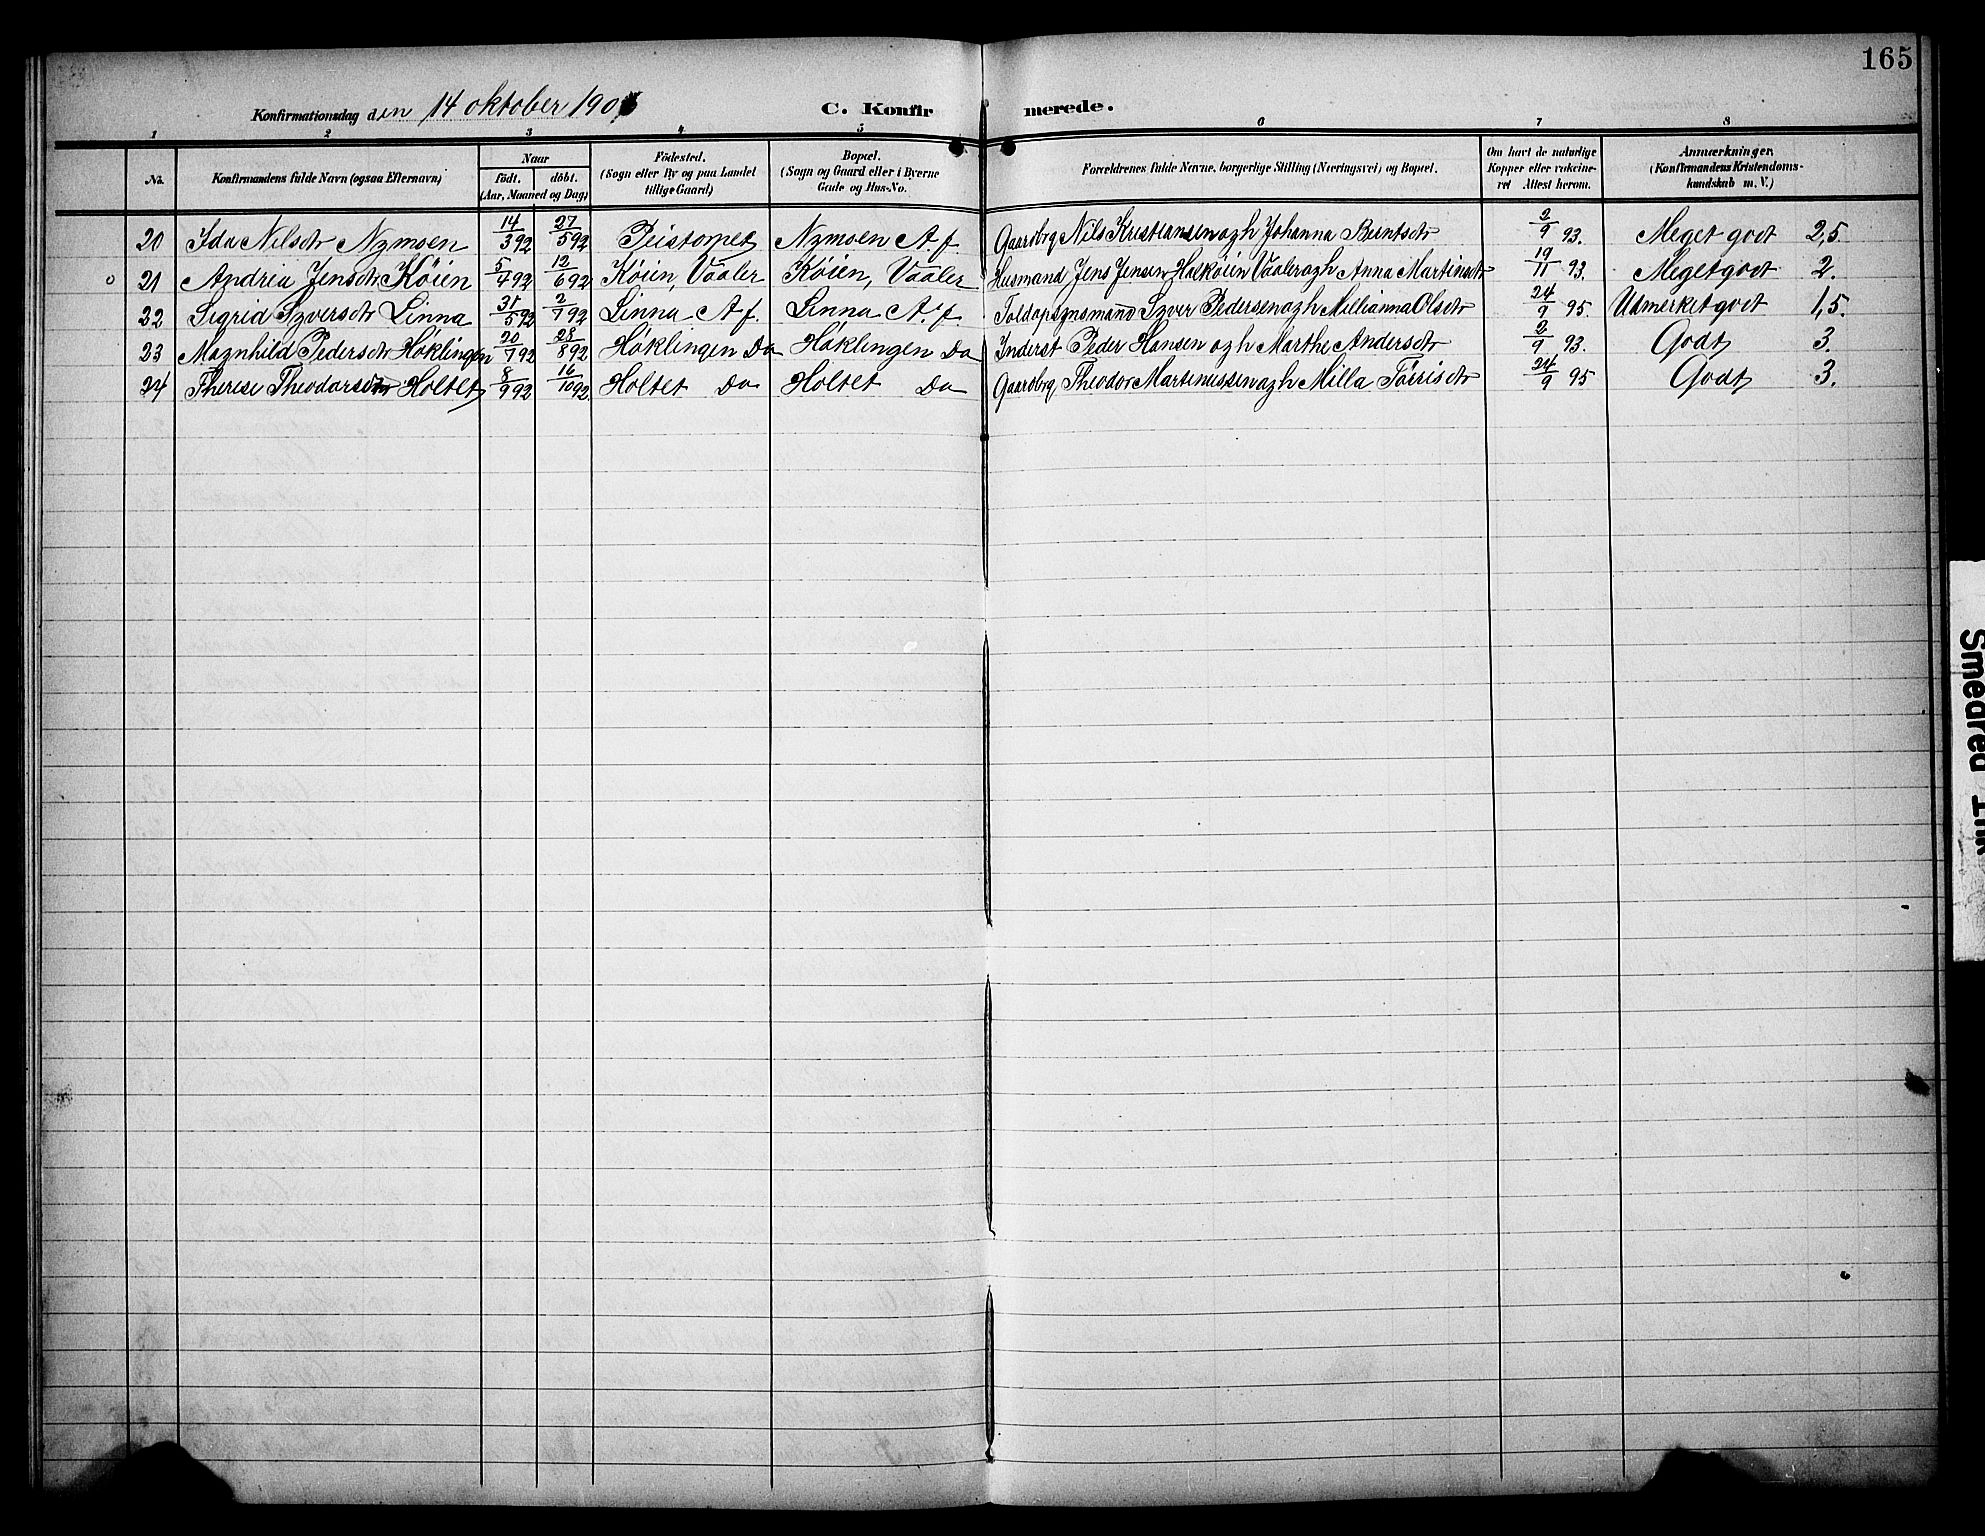 165
Konfirmationsdag den 14 oktober 190
C. Konfirmerede.
1 2 3 4 5 6 7 8
No. Konfirmandens fulde Navn (ogsaa Efternavn) Naar født. døbt. (Aar, Maaned og Dag) Fødested. (Sogn eller By og paa Landet tillige Gaard) Bopæl. (Sogn og Gaard eller i Byerne Gade og Hus-No. Forældrenes fulde Navne, borgerlige Stilling (Næringsvei) og Bopæl. Om havt de naturlige Kopper eller vakcineret Attest herom. Anmærkninger. (Konfirmandens Kristendomskundskab m. V.)
20 Ida Nilsdtr Nymoen 14/3 92 27/5 92 Peistorpet Nymoen A.f. Gaardbrg Nils Kristiansen og h Johanna Berntsdtr 2/9 93. Meget godt 2,5.
21 Andrea Jensdtr Köien 5/4 92 12/6 92 Köien, Vaaler Köien, Vaaler Husmand Jens Jensen Halköien Vaaler og h Anna Martinsdtr 19/11 93. Meget godt 2.
22 Sigrid Syversdtr Linna 31/5 92 2/7 92 Linna A f. Linna A. f. Toldopsynsmand Syver Pedersen og h Millianna Olsdtr 24/9 95. Udmerket godt 1,5.
23 Magnhild Pedersdtr Höklingen 20/7 92 28/8 92 Höklingen Do Höklingen Do Inderst Peder Hansen og h Marthe Andersdtr 2/9 93. Godt 3.
24 Therese Theodorsdtr Holtet 8/9 92 16/10 92. Holtet Do Holtet Do Gaardbrg Theodor Martinussen og h Milla Törisdtr 24/9 95 Godt 3.
Smeared Ink